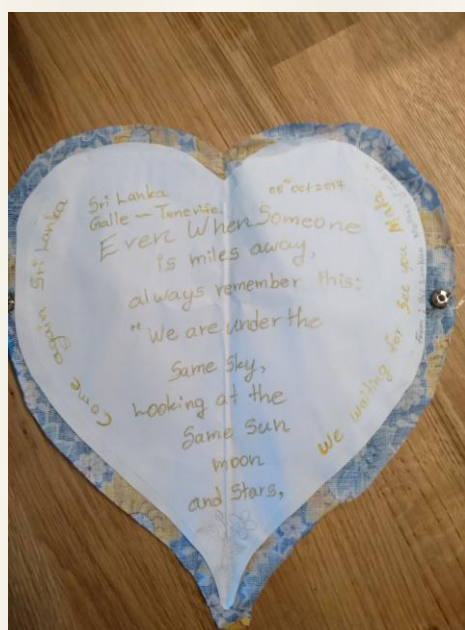 Sri Lanka
Galle – Tenerife
05th Oct 2017
Even When Someone
is miles away,
always remember this:
"We are under the
Same Sky,
Looking at the
Same Sun
moon
and Stars,
Come again Sri Lanka
We waiting for see you